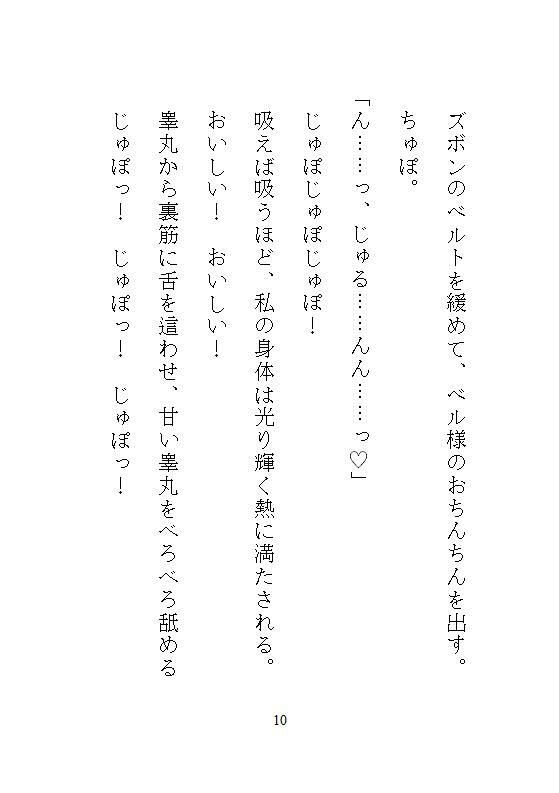 ズボンのベルトを緩めて、ベル様のおちんちんを出す。
ちゅぽ。
「ん……っ、じゅる……んん……っ♡」
じゅぽじゅぽじゅぽ！
吸えば吸うほど、私の身体は光り輝く熱に満たされる。
おいしい！　おいしい！
睾丸から裏筋に舌を這わせ、甘い睾丸をべろべろ舐める
じゅぽっ！　じゅぽっ！　じゅぽっ！
10